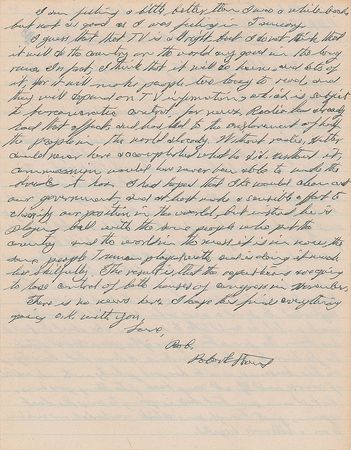 I am feeling a little better than I was a while back,
but not as good as I was feeling in January.
I guess that that TV is alright but I do not think that
it will do the country or the world any good in the long
run. In fact, I think that it will do harm, and lots of
it, for it will make people too lazy to read, and
they will depend on TV information, which is subject
to bureaucratic control, for news. Radio has already
had that effect, and has led to the enslavement of half
the people in the world already. Without radio, Hitler
could never have accomplished what he did; without it,
communism would have never been able to make the
strides it has. I had hoped that Ike would clean out
our government, and at least make a sensible effort to
clarify our position in the world, but instead, he is
playing ball with the same people who put the
country and the world in the mess it is in now, the
same people Truman played with, and is doing it much
less skilfully. The result is that the republicans are going
to lose control of both houses of congress in November.
There is no news here. I hope this finds everything
going O.K. with you.
Love,
Bob.
Robert Stroud